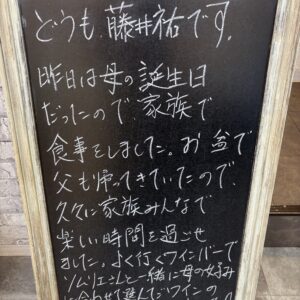 どうも、藤井祐です。
昨日は母の誕生日
だったので、家族で
食事をしました。お盆で
父も帰ってきていたので、
久々に家族みんなで
楽しい時間を過ごせ
ました。よく行くワインバーで
ソムリエさんと一緒に母の好み
に合わせて選んだワインの